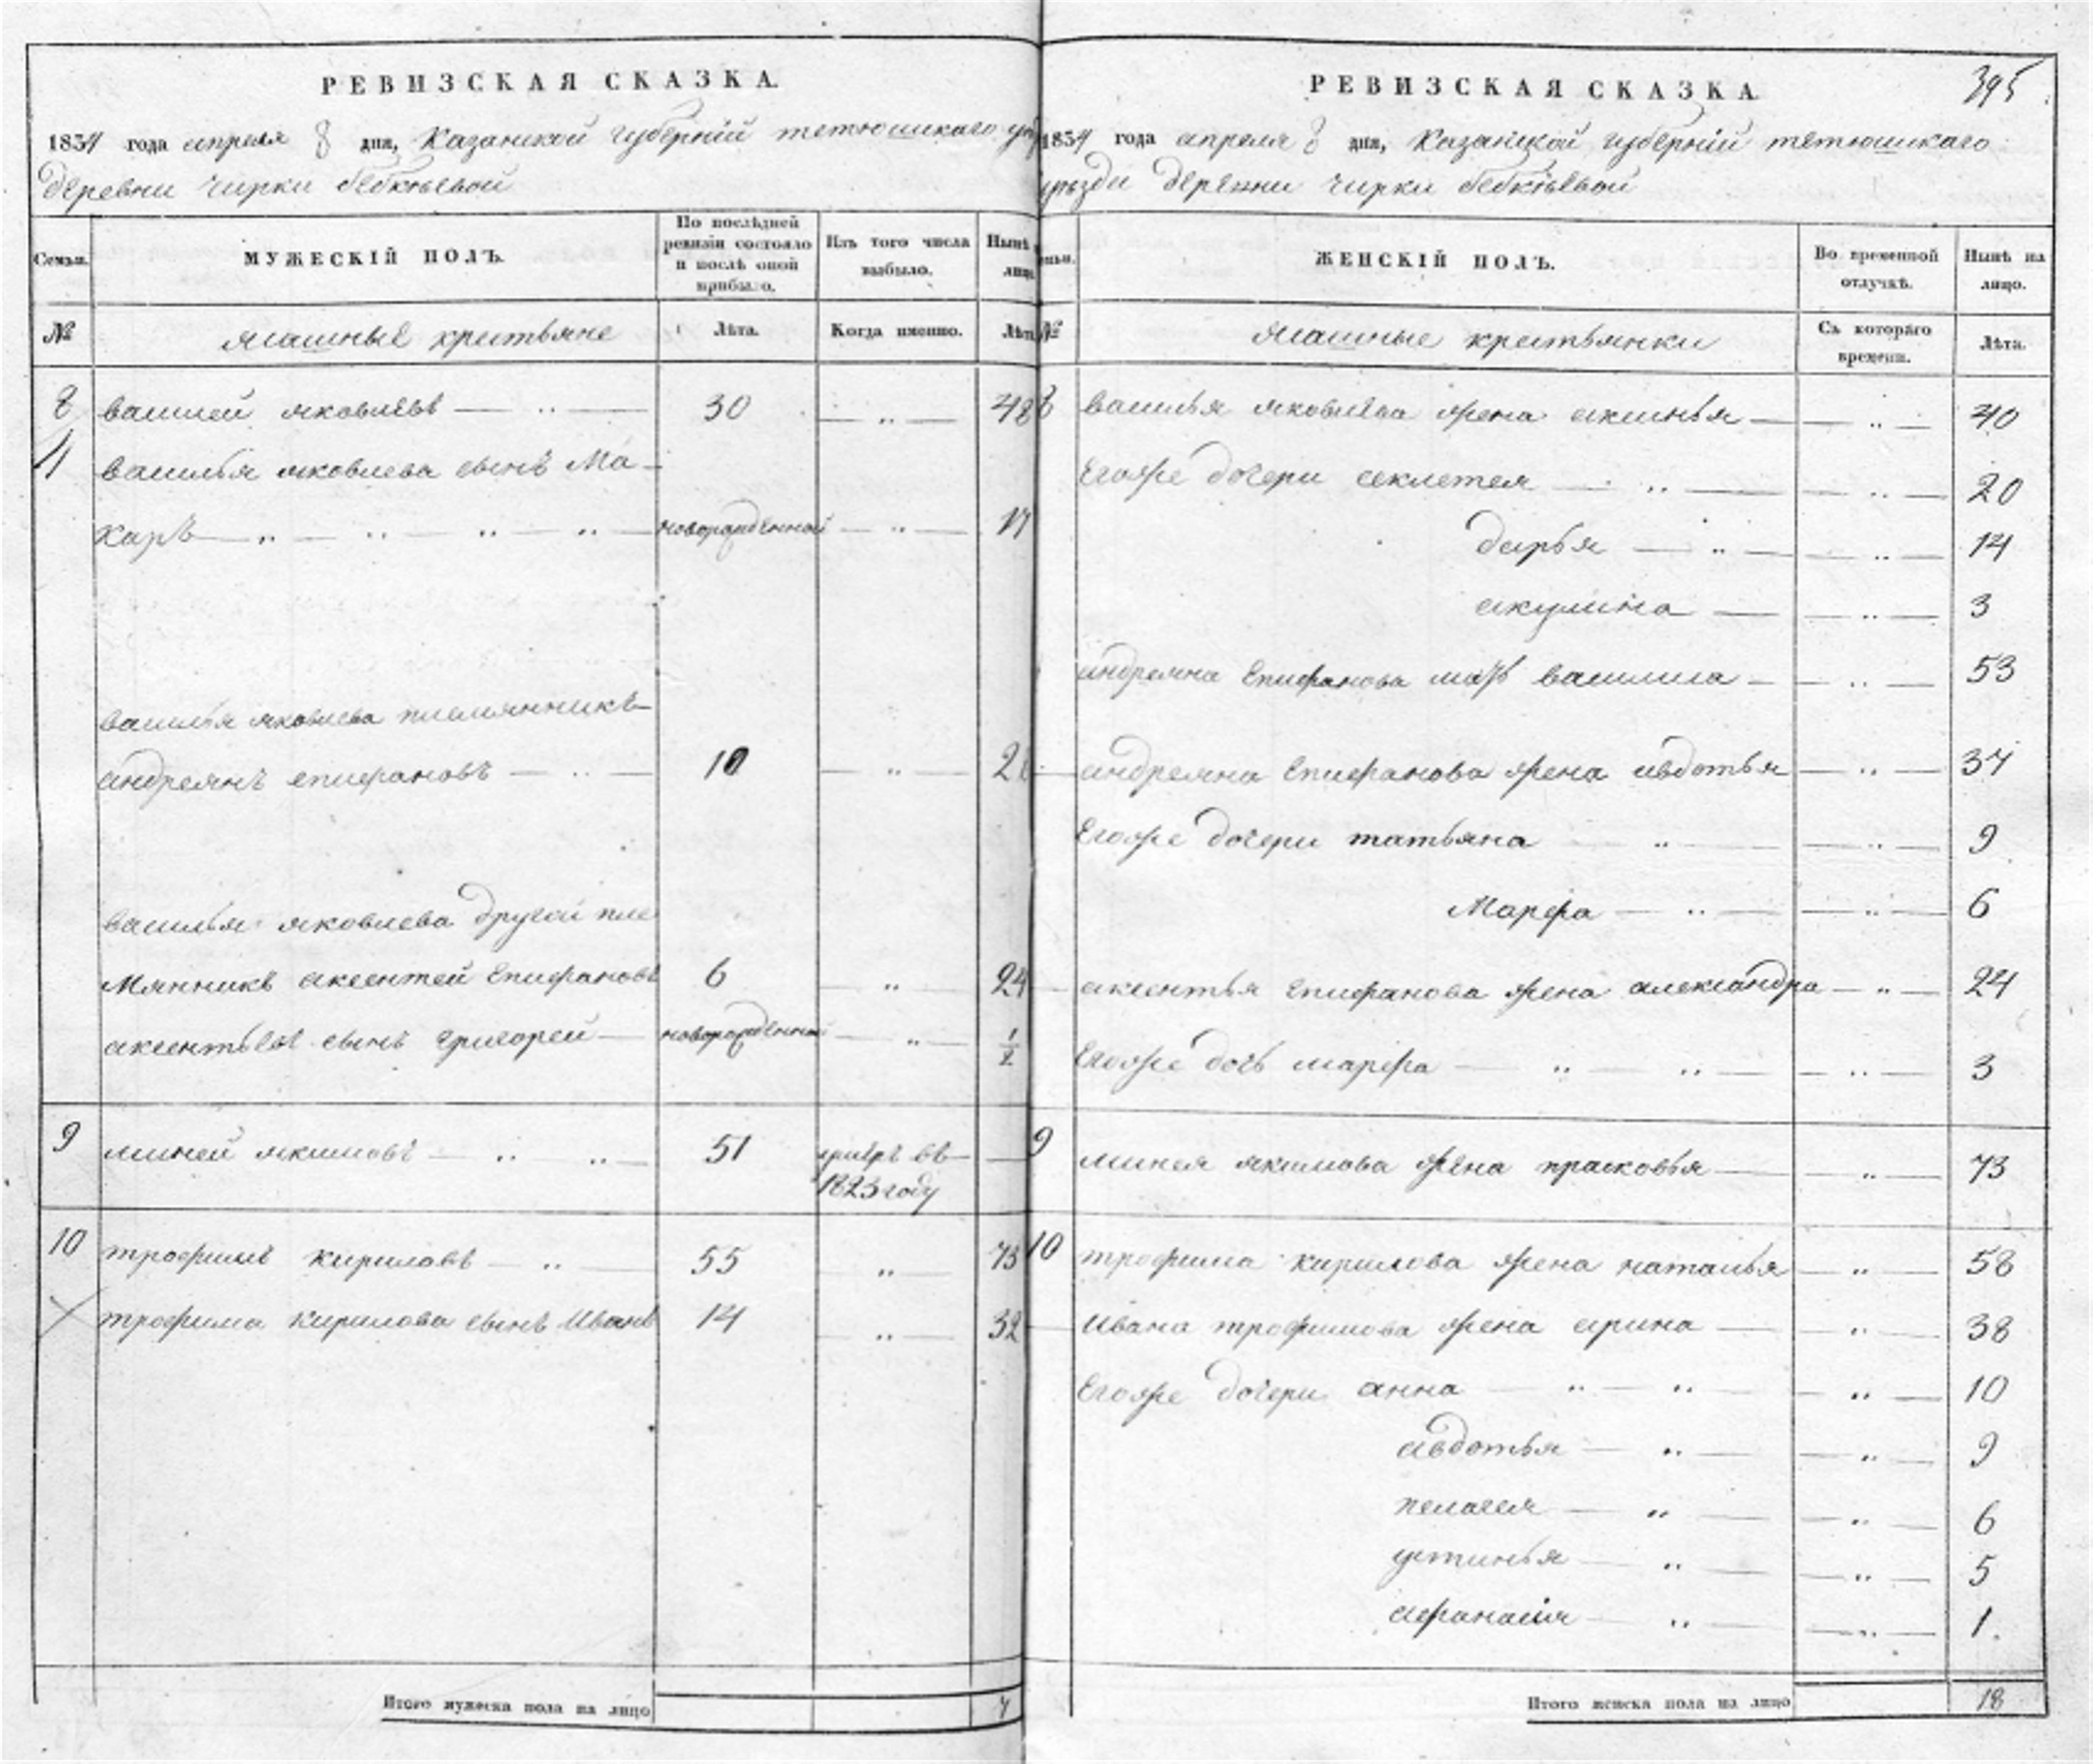 РЕВИЗСКАЯ СКАЗКА.
1834 года апреля 8 дня, Казанской губерніи тетюшскаго
деревни чирки бебкѣевой
Семьи.
МУЖЕСКІЙ ПОЛЪ.
По послѣдней ревизіи состояло и послѣ оной прибыло.
Изъ того числа выбыло.
Нынѣ лицо
№
ясашные крестьяне
Лѣта.
Когда именно.
Лѣта
8 василей яковлевъ — „ — 30 — „ — 48
11 василья яковлева сынъ Ма-
каръ — „ — „ — „ — „ — новорожденной — „ — 17
василья яковлева племянникъ —
андреянъ епифановъ — „ — 10 — „ — 28
василья яковлева другой пле
мянникъ аксентей Епифановъ 6 „ 24
аксентьевъ сынъ григорей — новорожденной — „ — 1/2
9 миней якимовъ — „ „ — 51 умеръ въ —
1823 году
10 трофимъ кириловъ — „ — 55 „ — 73
трофима кирилова сынъ Иванъ 14 — „ — 32
Итого мужеска пола на лицо 7
РЕВИЗСКАЯ СКАЗКА.
395
1834 года апреля 8 дня, Казанской губерніи тетюшскаго
уѣзда деревни чирки бебкѣевой
ЖЕНСКІЙ ПОЛЪ.
Во временной отлучкѣ.
Нынѣ на лицо.
№
ясашные крестьянки
Съ котораго времени.
Лѣта.
8 василья яковлева жена аксинья — — „ — 40
Егоже дочери секлетея — „ — — „ — 20
дарья — „ — — „ — 14
акулина — — „ — 3
андреяна Епифанова мать василиса — — „ — 53
андреяна Епифанова жена авдотья — „ — 37
Егоже дочери татьяна — „ — — „ — 9
Марфа — „ — — „ — 6
аксентья Епифанова жена александра — „ — 24
Егоже дочь марфа — „ — „ — — „ — 3
9 минея якимова жена прасковья — — „ — 73
10 трофима кирилова жена наталья — „ — 58
Ивана трофимова жена арина — — „ — 38
Егоже дочери анна — „ — „ — „ — 10
авдотья — „ — — „ — 9
пелагея — „ — — „ — 6
устинья — „ — — „ — 5
афанасія — „ — — „ — 1.
Итого женска пола на лицо 18